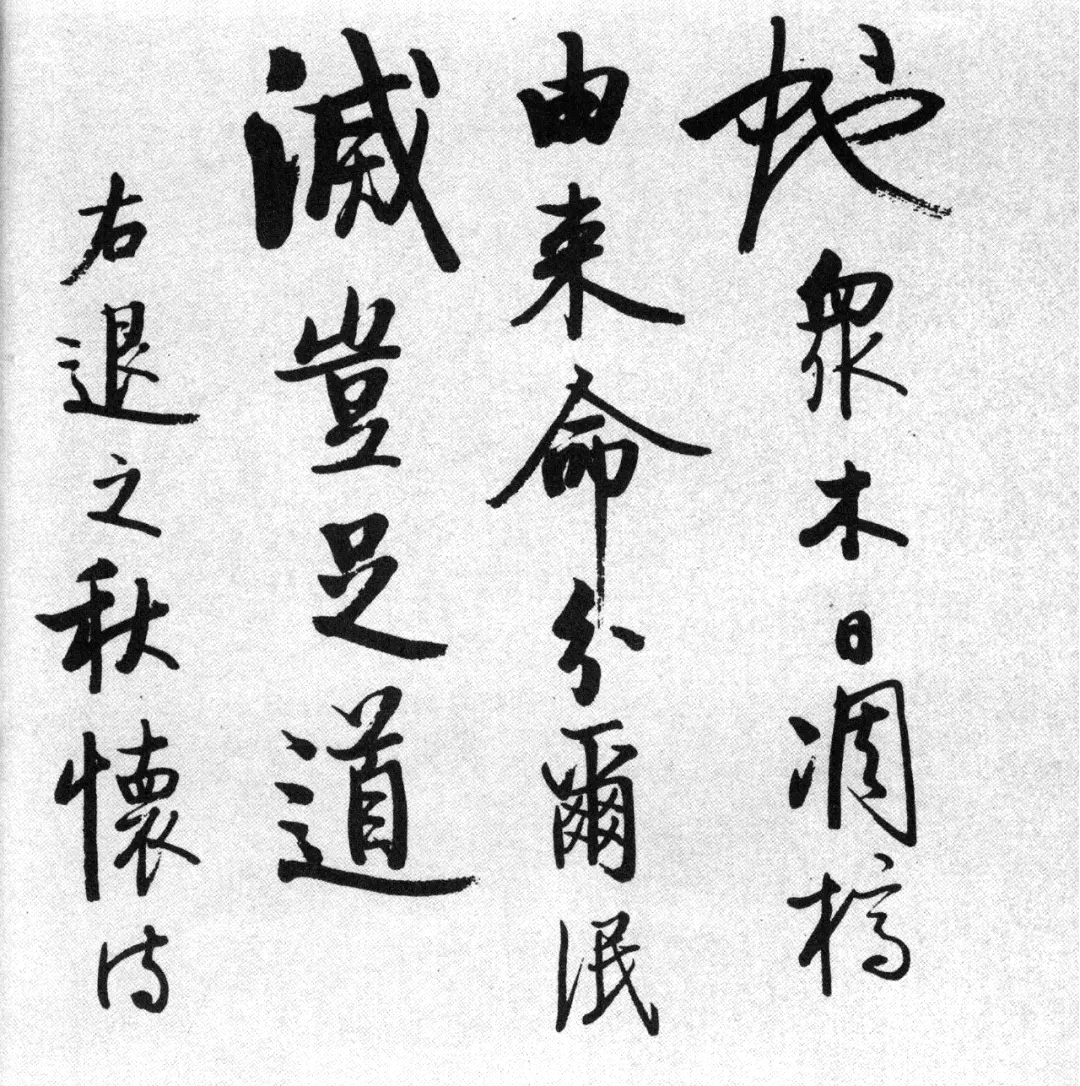 蛇衆木日凋槁
由来命分爾泯
滅豈足道
右退之秋懷詩